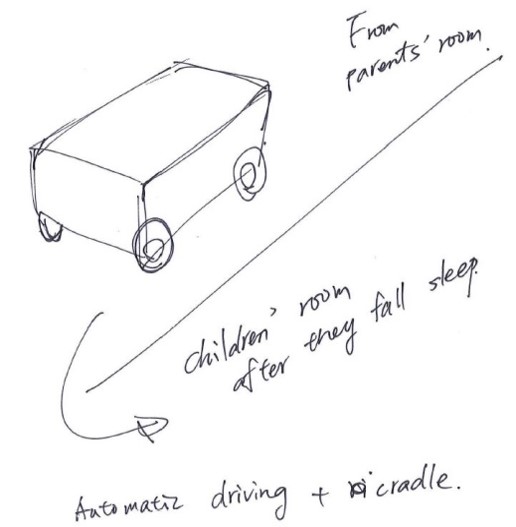 From
parents' room.
children' room
after they fall sleep.
Automatic driving + cradle.